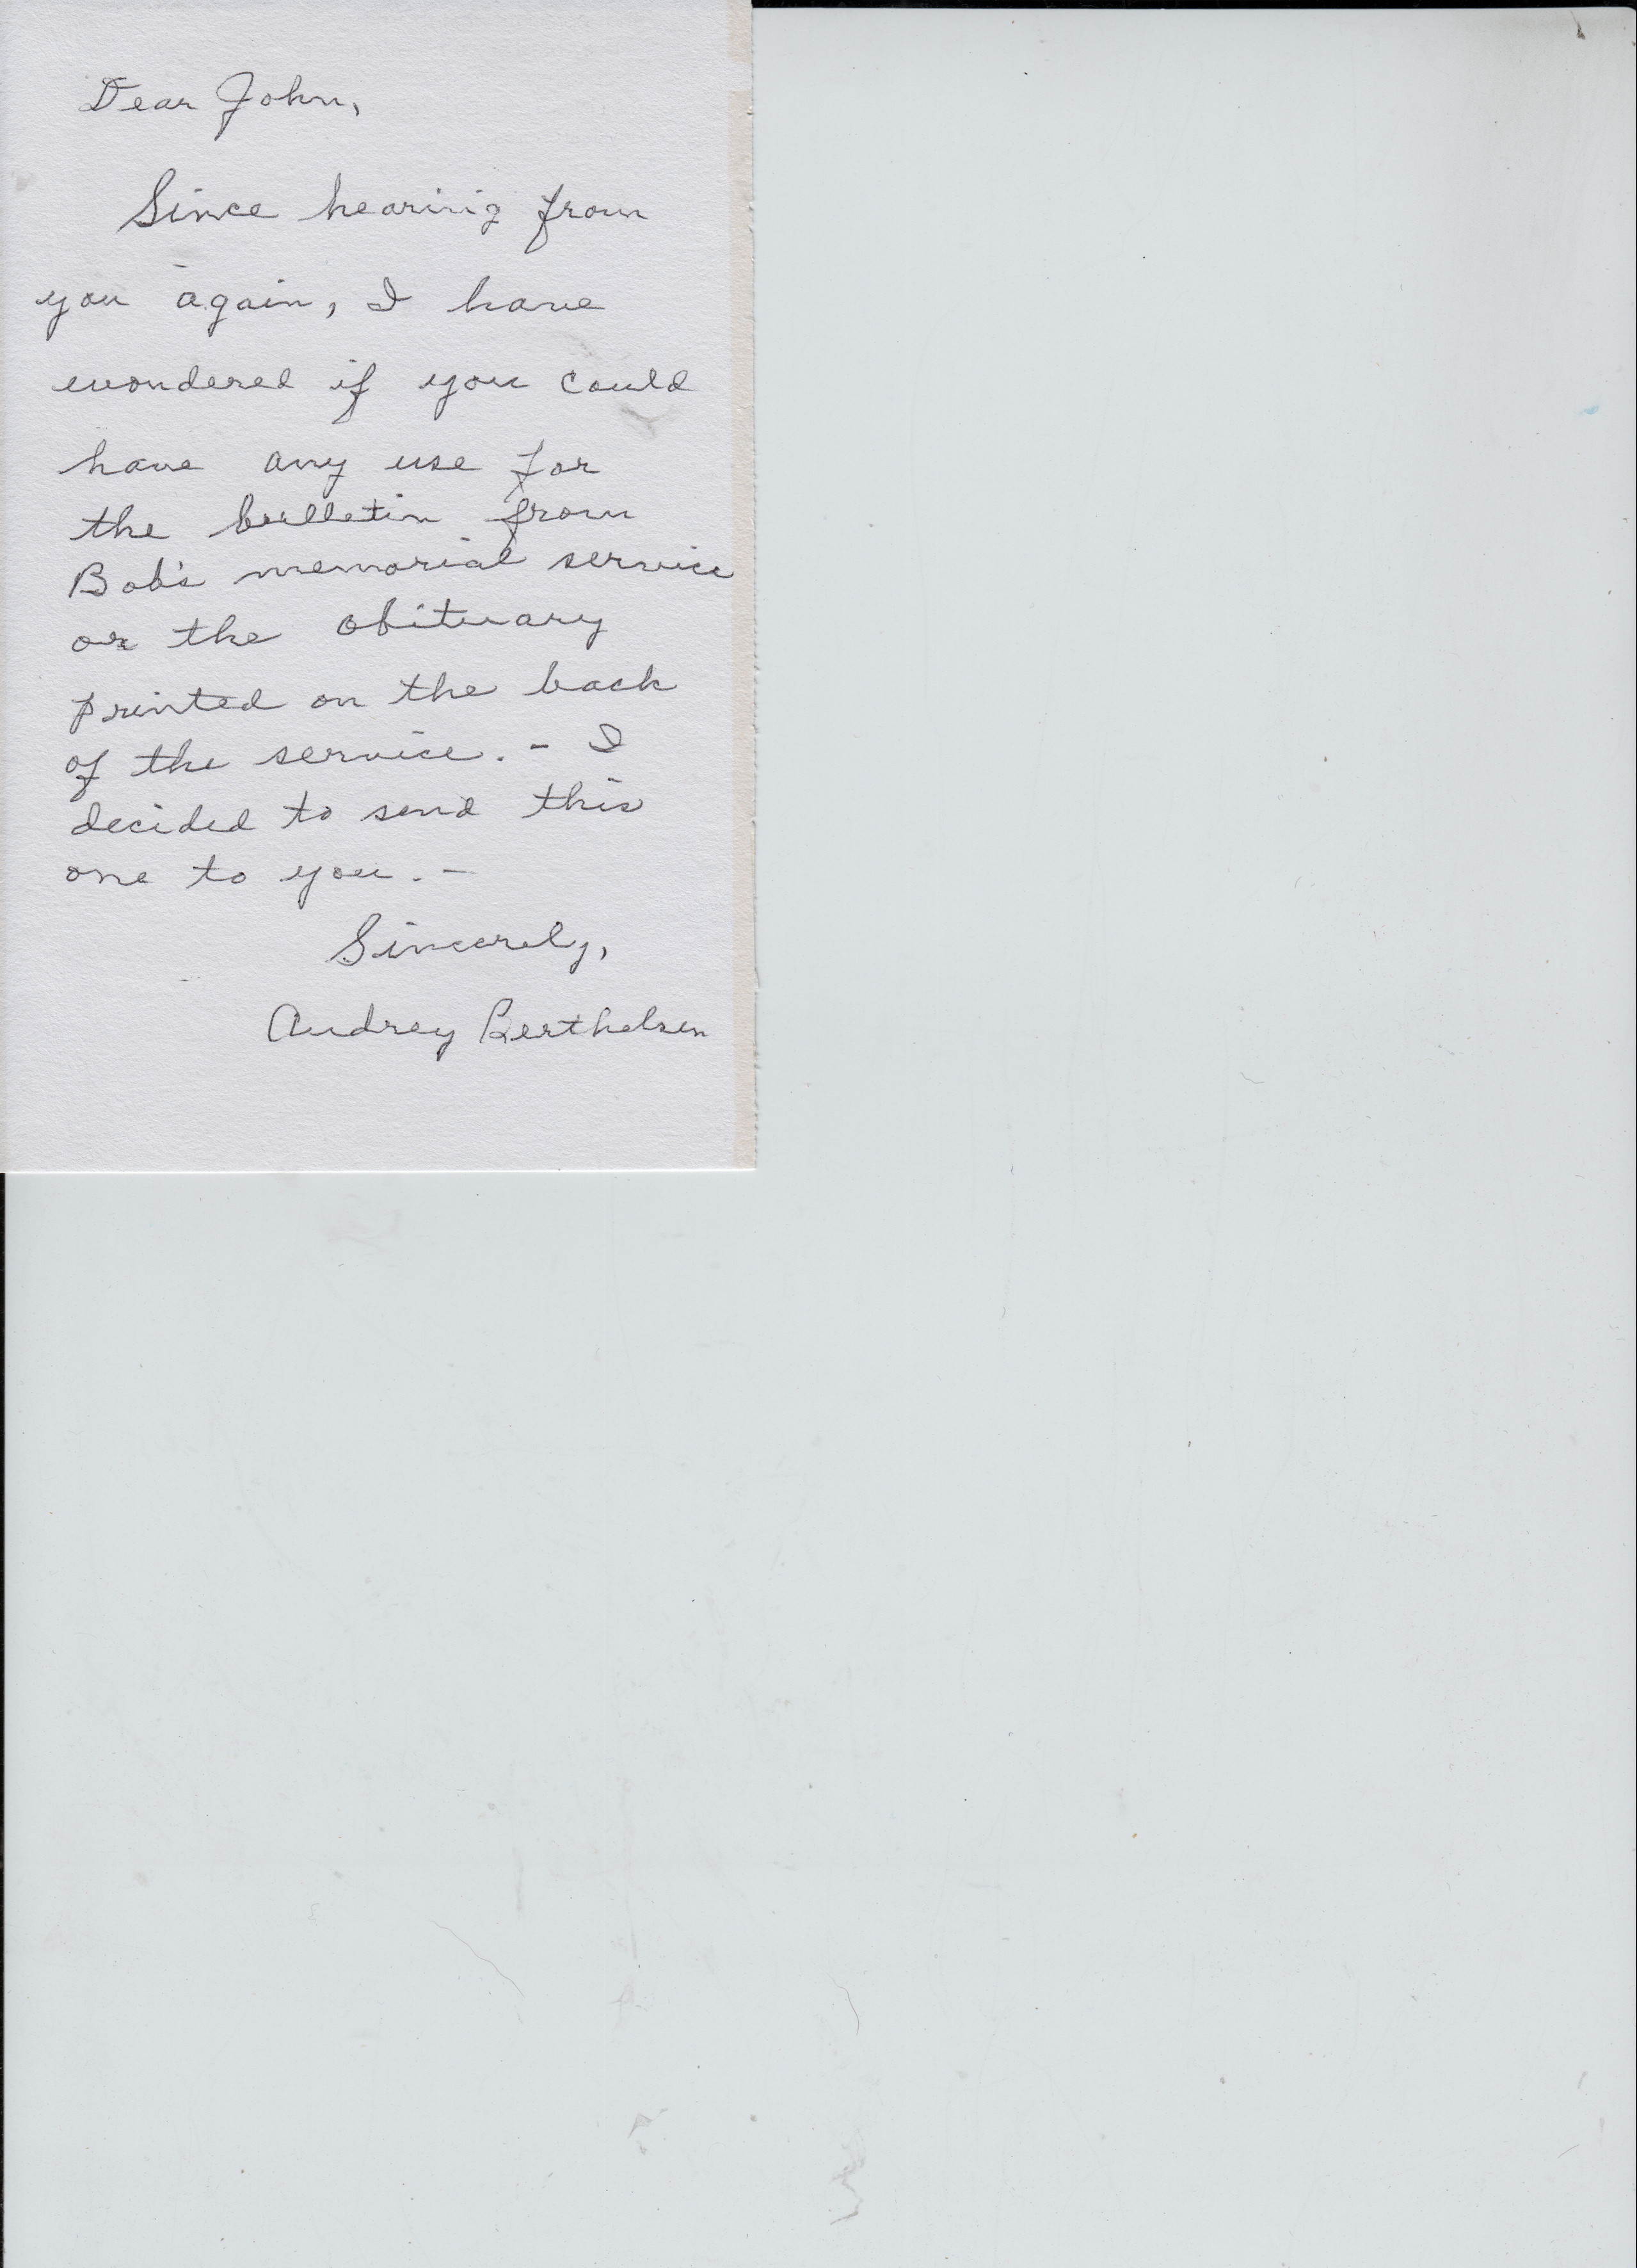 Dear John,
Since hearing from
you again, I have
wondered if you could
have any use for
the bulletin from
Bob's memorial service
or the obituary
printed on the back
of the service. - I
decided to send this
one to you. -
Sincerely,
Audrey Berthelsen